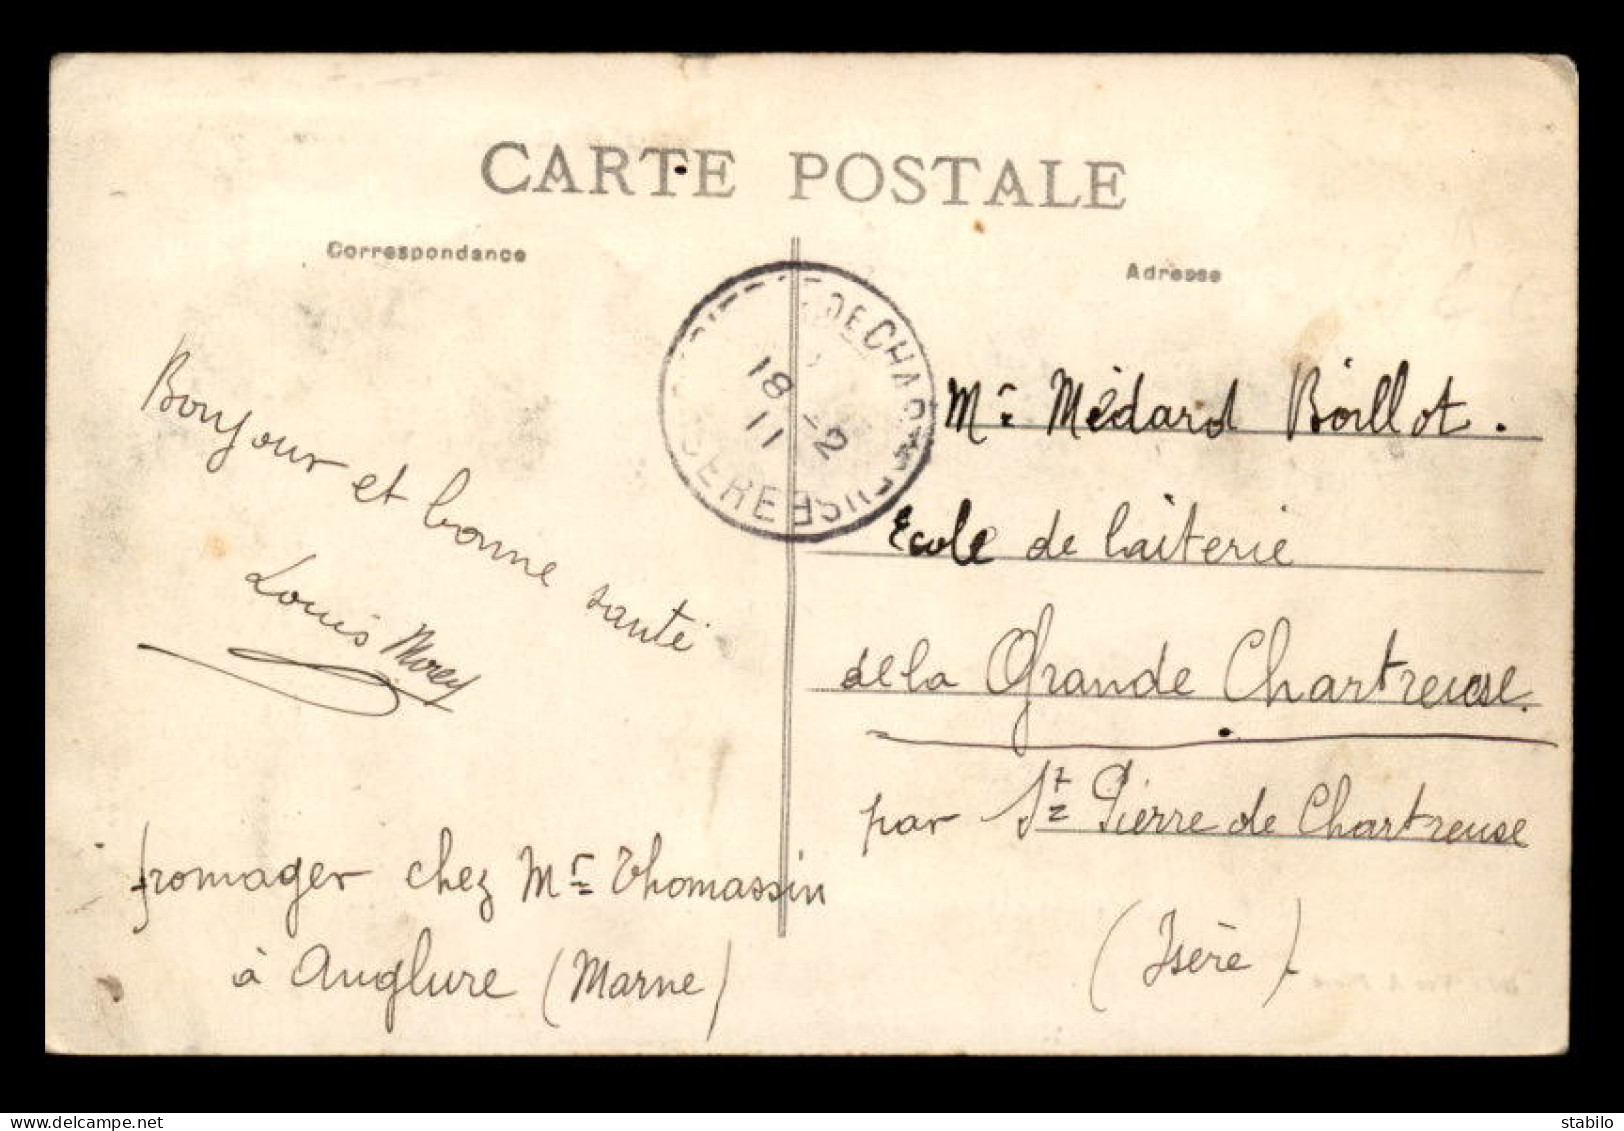 CARTE POSTALE
Correspondance
Adresse
Bonjour et bonne santé
Louis Morey
fromager chez Mr Thomassin
à Anglure (Marne)
DE CHARTREUSE
18 - 2
11
ISERE
Mr Médard Boillot.
Ecole de laiterie
de la Grande Chartreuse.
par St Pierre de Chartreuse
(Isère).
delcampe.net
stabilo